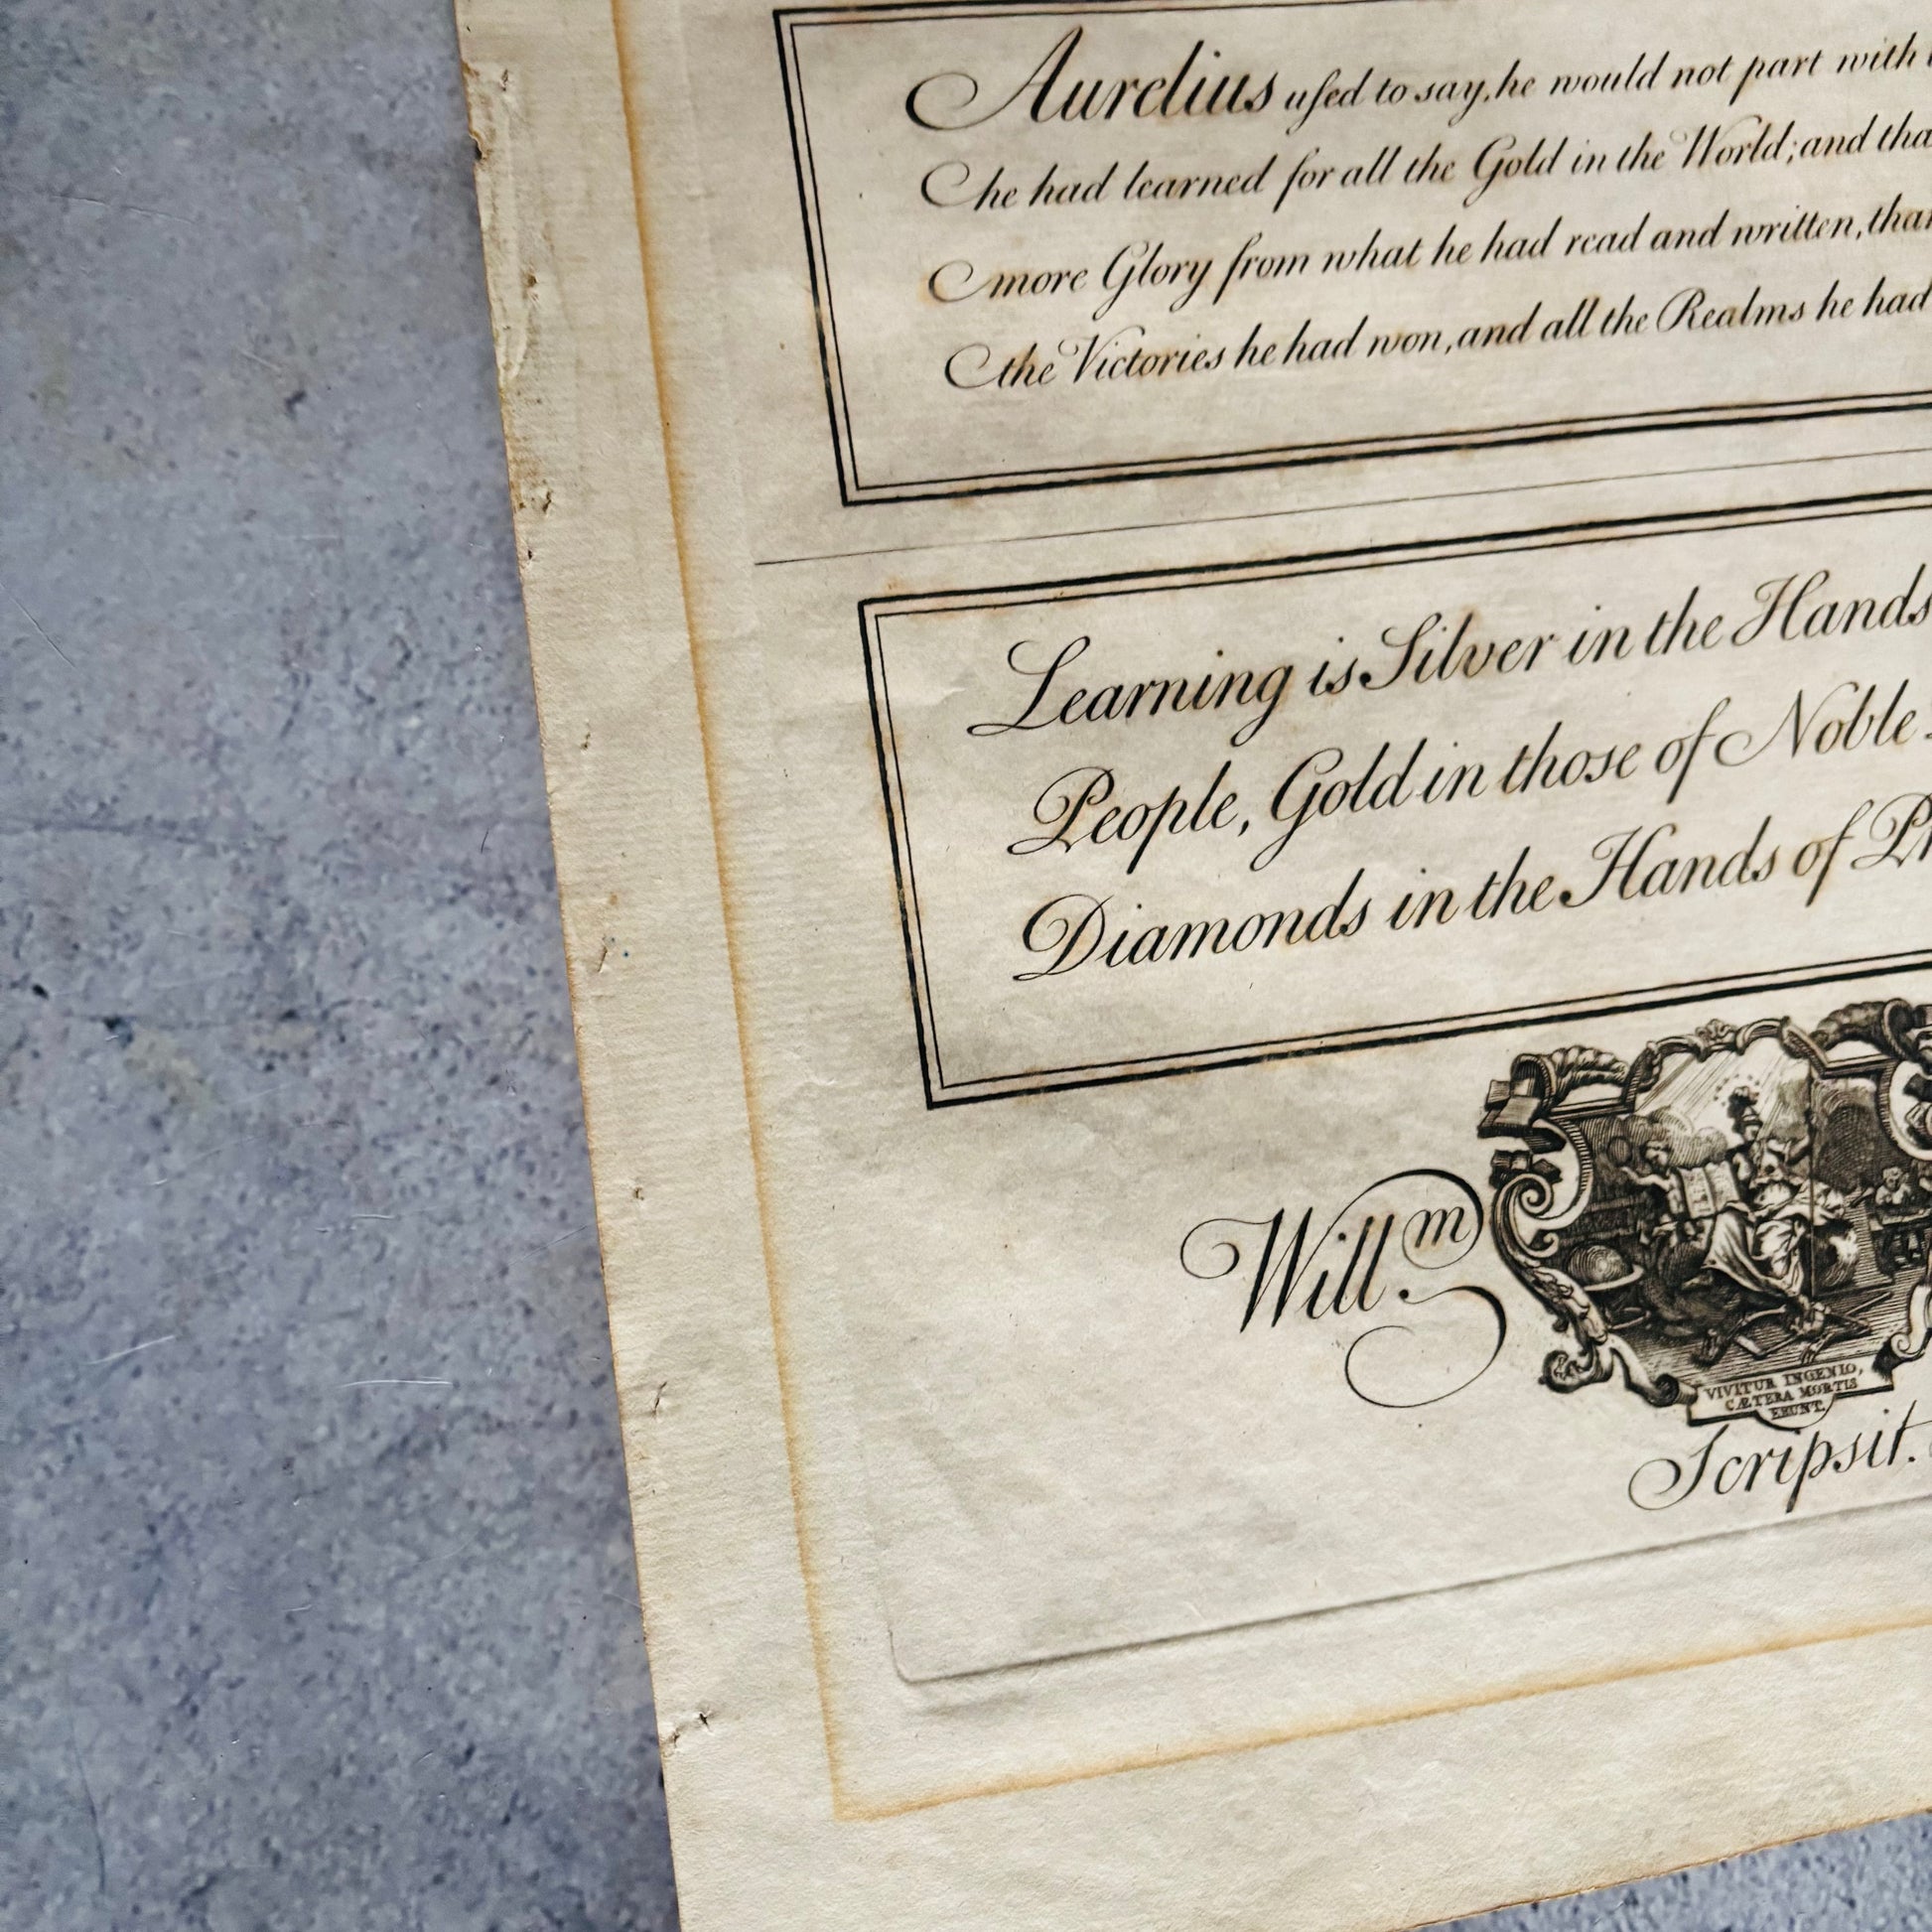 Aurelius uſed to say, he would not part with
he had learned for all the Gold in the World; and tha
more Glory from what he had read and written, than
the Victories he had won, and all the Realms he had
Learning is Silver in the Hands
People, Gold in those of Noble
Diamonds in the Hands of Pr
Will.m
VIVITUR INGENIO,
CÆTERA MORTIS
ERUNT.
Scripsit.